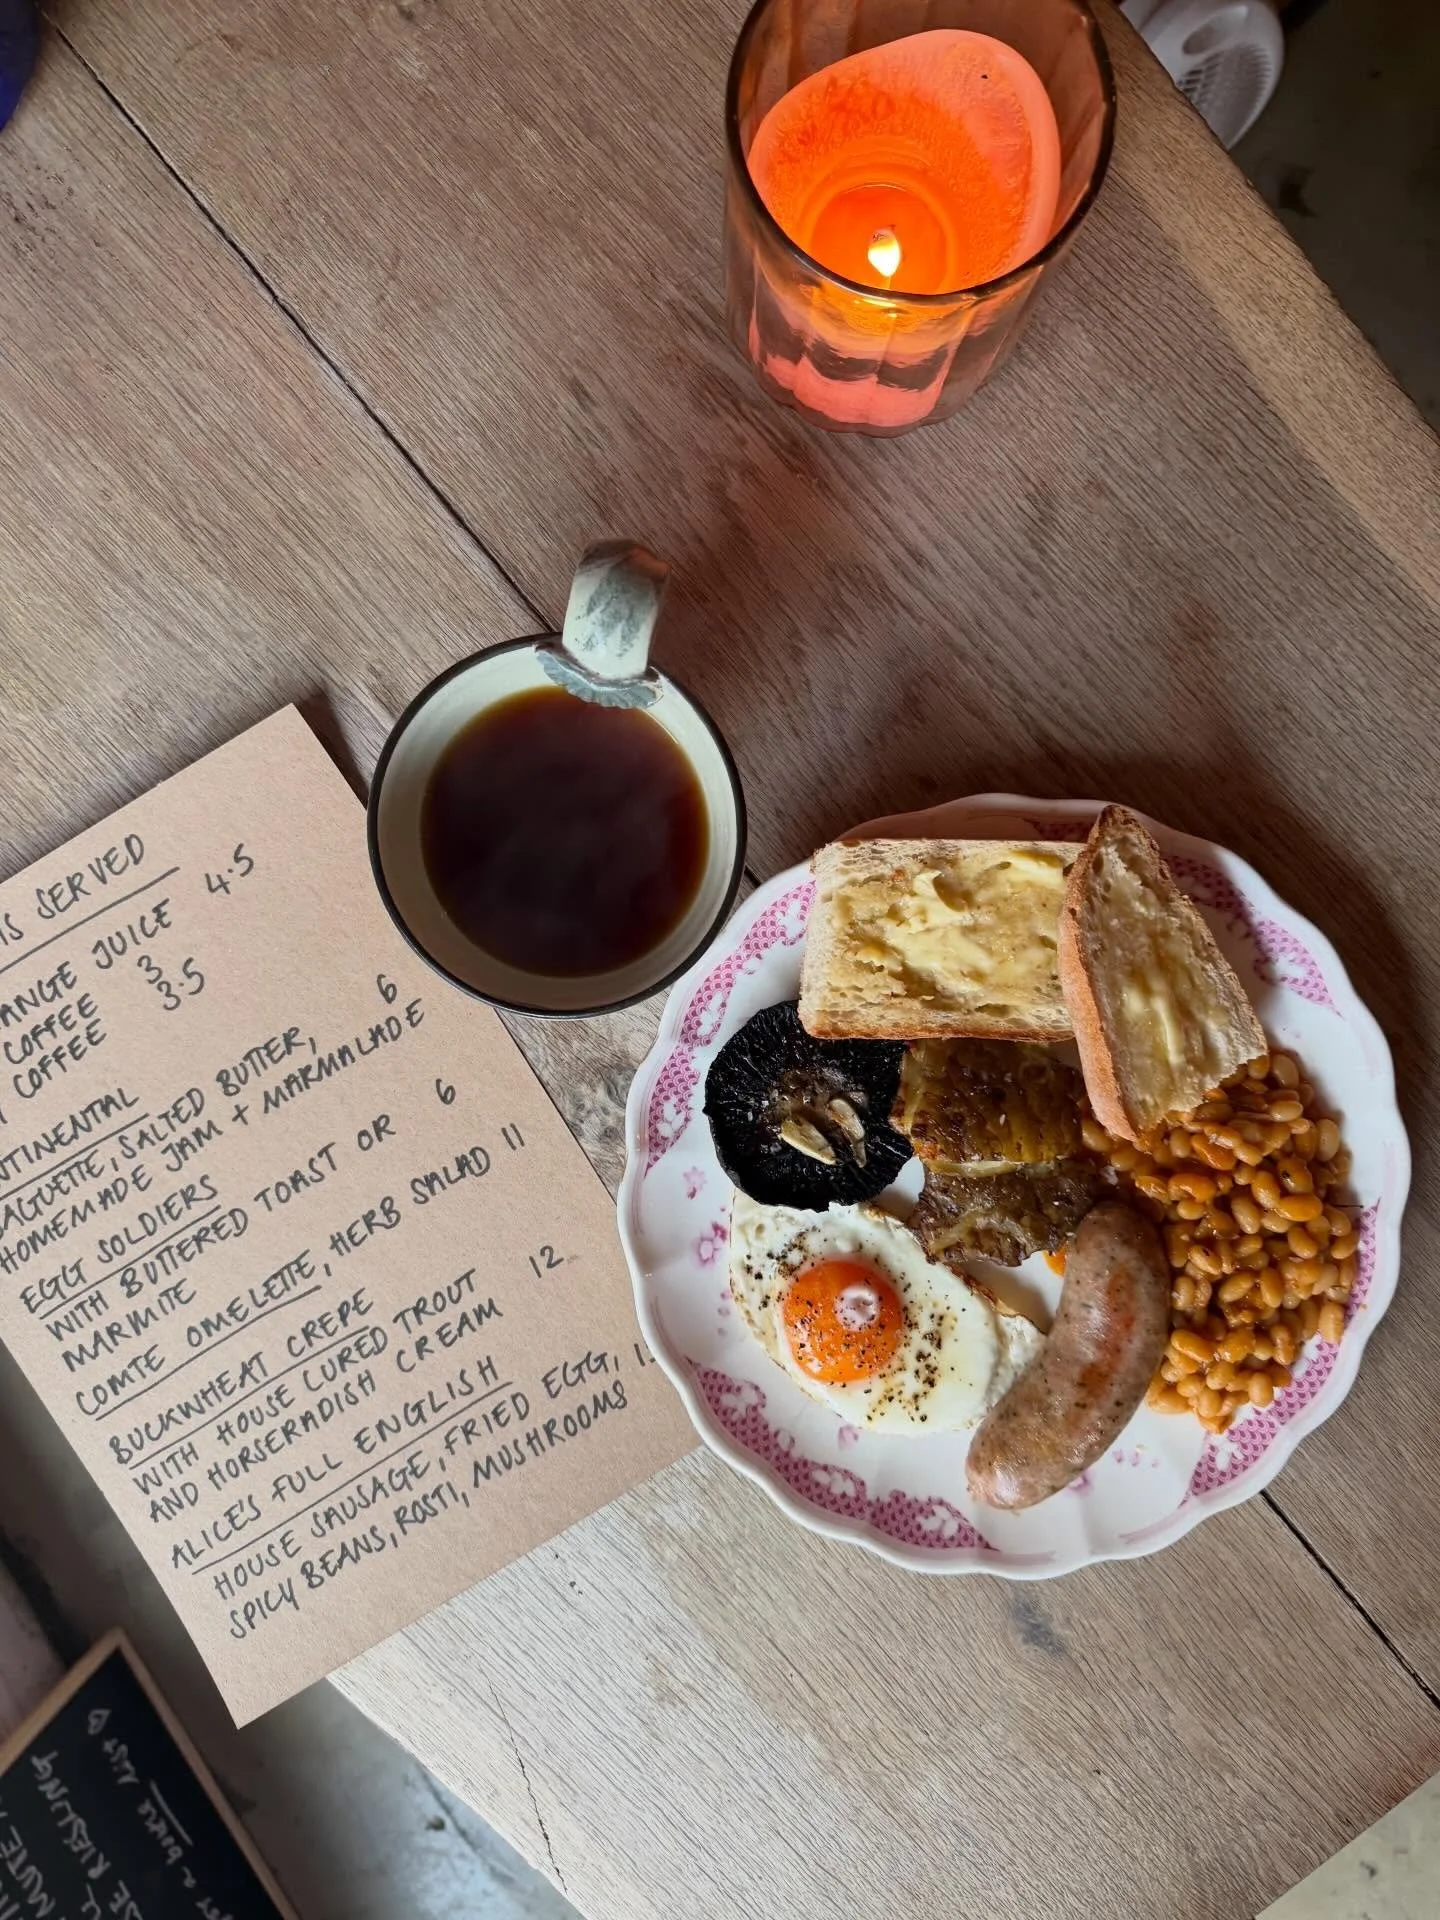 IS SERVED
ANGE JUICE 4.5
COFFEE 3
COFFEE 3.5
NTINENTAL 6
BAGUETTE, SALTED BUTTER,
HOMEMADE JAM + MARMALADE
EGG SOLDIERS 6
WITH BUTTERED TOAST OR
MARMITE
COMTE OMELETTE, HERB SALAD 11
BUCKWHEAT CREPE 12
WITH HOUSE CURED TROUT
AND HORSERADISH CREAM
ALICE'S FULL ENGLISH
HOUSE SAUSAGE, FRIED EGG,
SPICY BEANS, ROSTI, MUSHROOMS
list
RIESLING